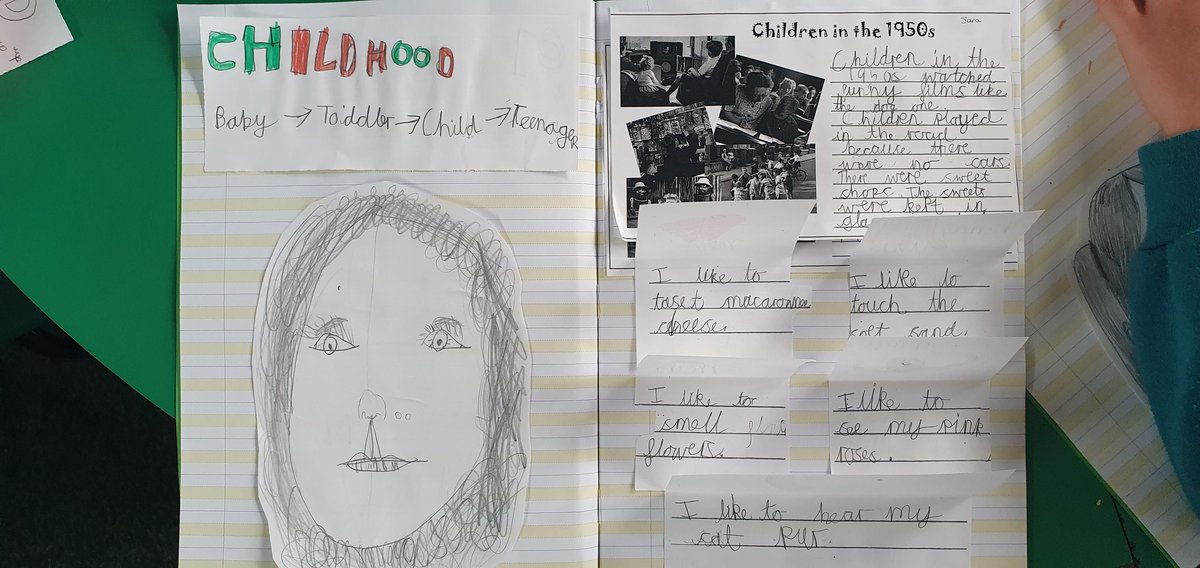 CHILDHOOD
Baby → Toddler → Child → Teenager
Sara
Children in the 1950s
Children in the
1950s watched
funny films like
the dog one.
Children played
in the road
because there
were no cars.
There were sweet
shops. The sweets
were kept in
gla
I like to
taset macaronne
cheese.
I like to
touch the
soft sand.
I like to
smell
flowers.
I like to
see my pink
roses.
I like to hear my
cat pur.